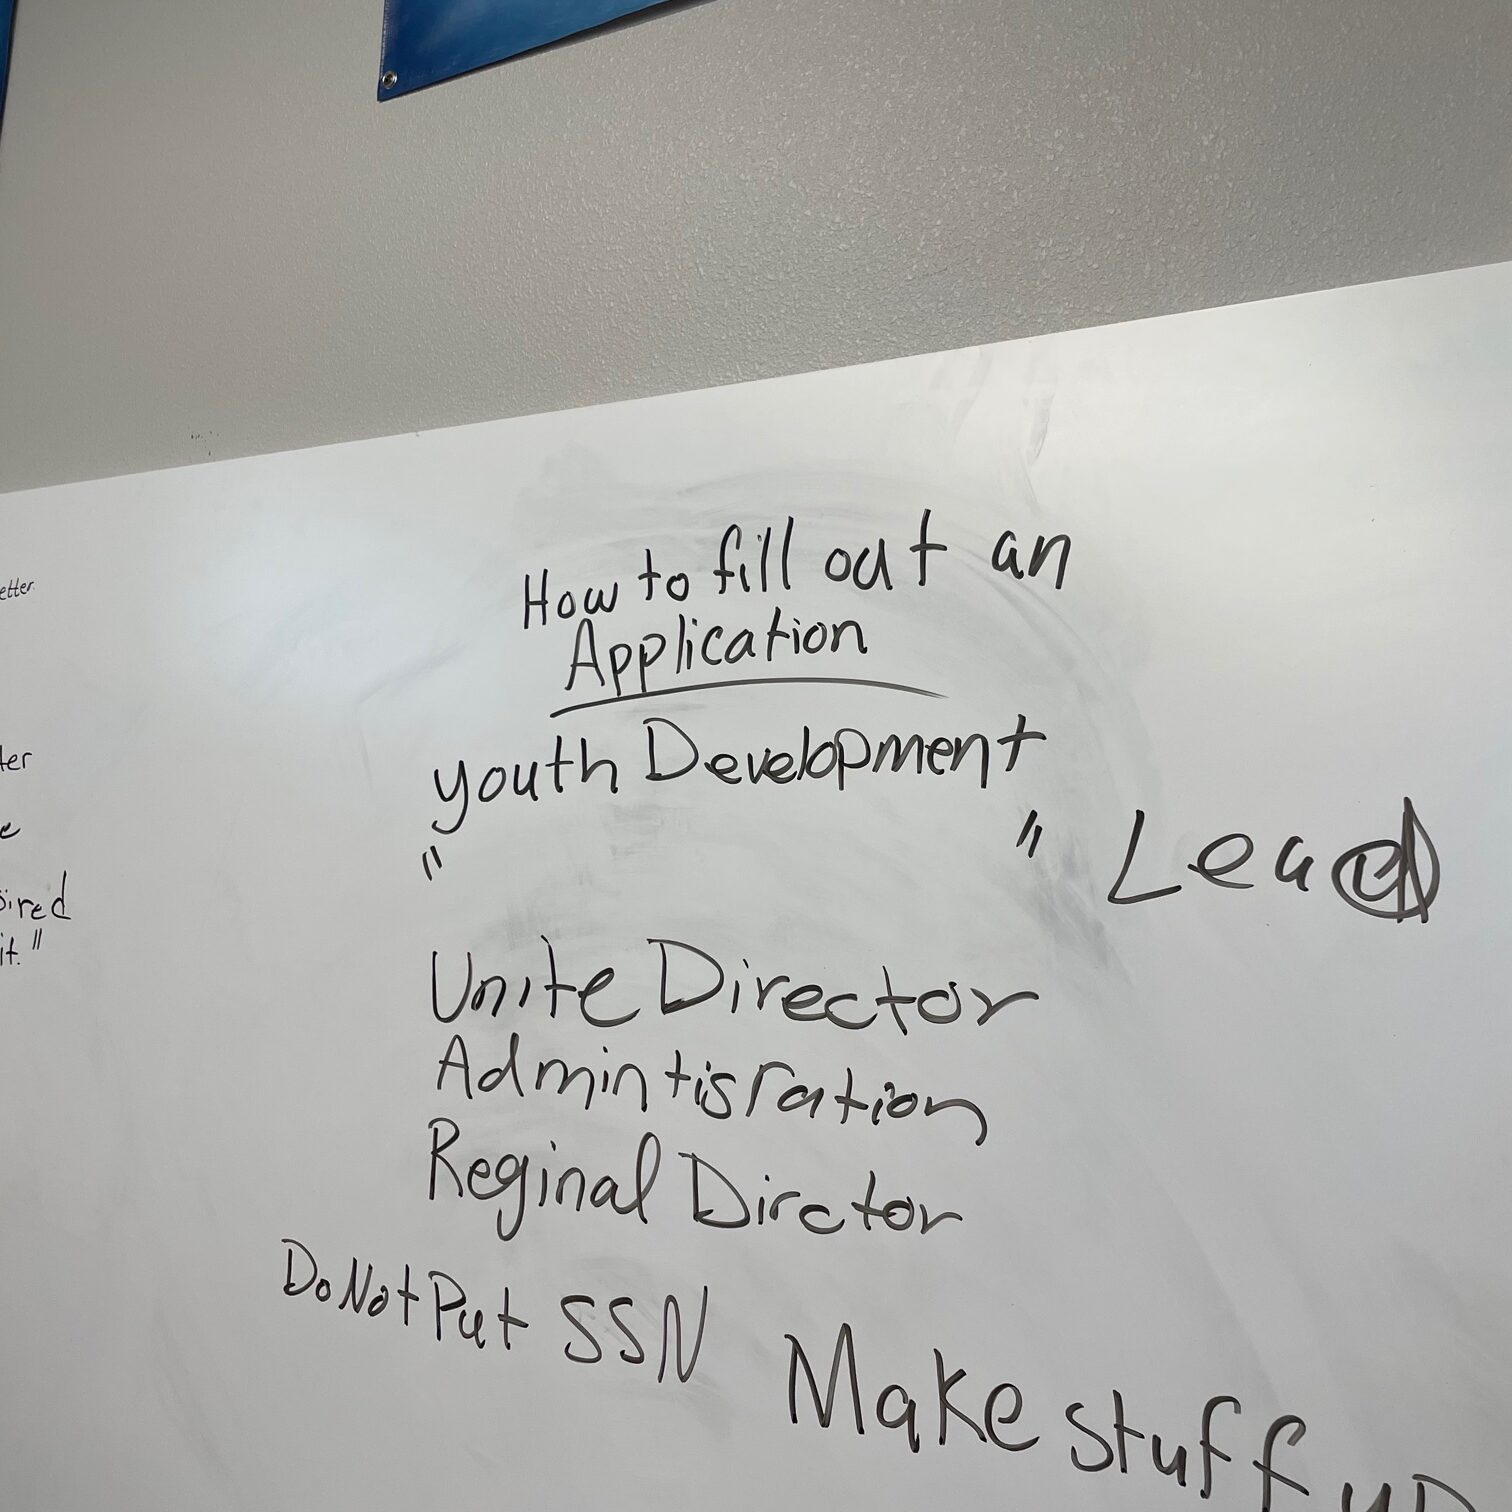 etter.
ter
e
pired
it."
How to fill out an
Application
youth Development
" " Lead
Unite Director
Admintisration
Reginal Dirctor
Do Not Put SSN
Make stuff up